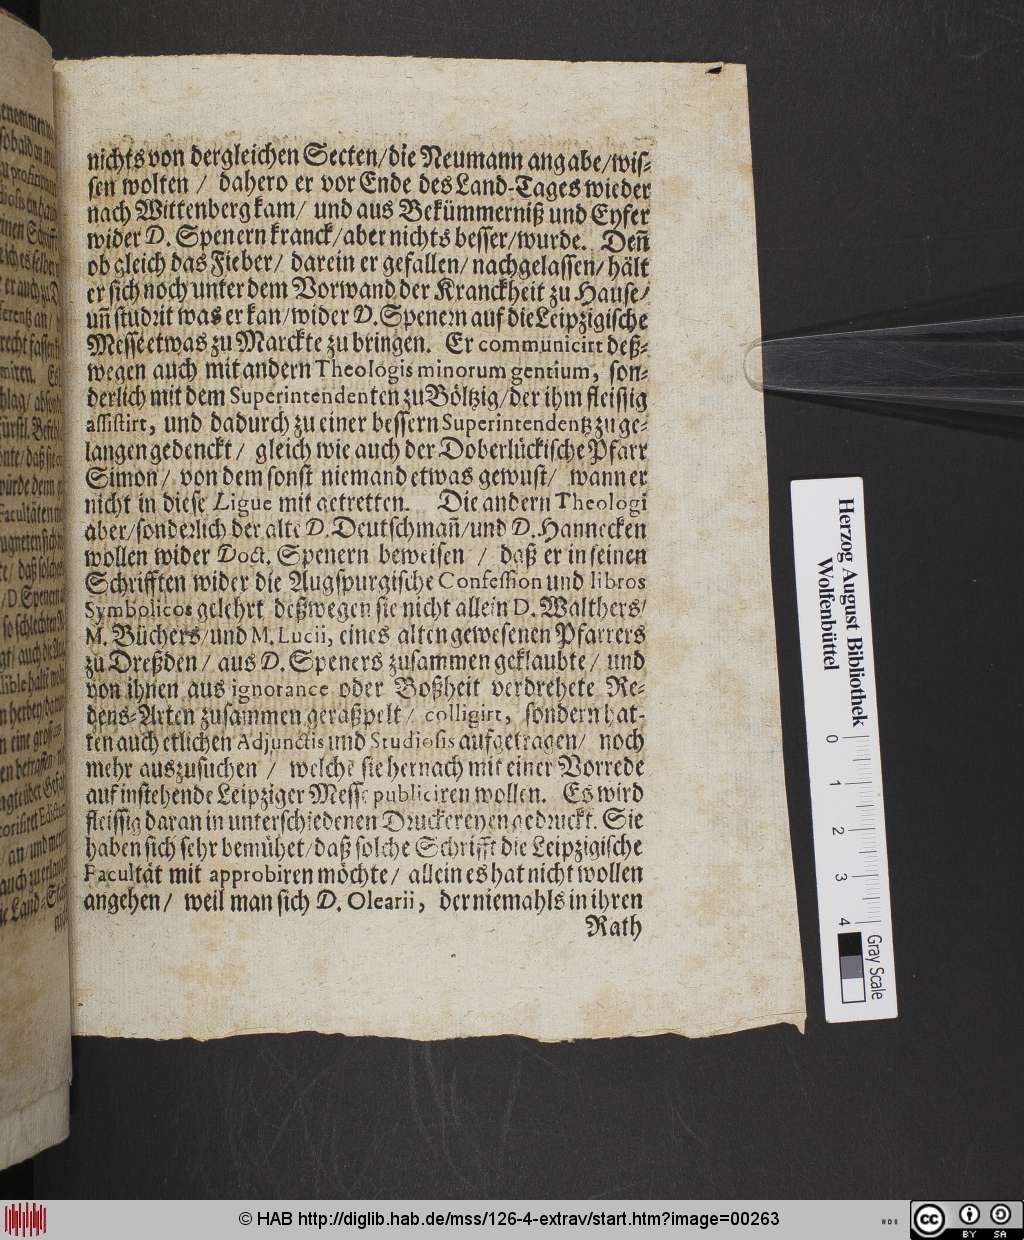 nichts von dergleichen Secten/die Neumann angabe/wis-
sen wolten / dahero er vor Ende des Land-Tages wieder
nach Wittenberg kam/ und aus Bekümmerniß und Eyfer
wider D. Spenern kranck/aber nichts besser/wurde. Deñ
ob gleich das Fieber/ darein er gefallen/ nachgelassen/ hält
er sich noch unter dem Vorwand der Kranckheit zu Hause/
uñ studirt was er kan/wider D. Spenern auf die Leipzigische
Messe etwas zu Marckte zu bringen. Er communicirt deß-
wegen auch mit andern Theologis minorum gentium, son-
derlich mit dem Superintendenten zu Böltzig/der ihm fleissig
assistirt, und dadurch zu einer bessern Superintendentz zu ge-
langen gedenckt / gleich wie auch der Doberlückische Pfarr
Simon/ von dem sonst niemand etwas gewust/ wann er
nicht in diese Ligue mit getretten. Die andern Theologi
aber/sonderlich der alte D. Deutschmañ/und D. Hannecken
wollen wider Doct. Spenern beweisen / daß er in seinen
Schrifften wider die Augspurgische Confession und libros
Symbolicos gelehrt deßwegen sie nicht allein D. Walthers/
M. Büchers/und M. Lucii, eines alten gewesenen Pfarrers
zu Dreßden/ aus D. Speners zusammen geklaubte/ und
von ihnen aus ignorance oder Boßheit verdrehete Re-
dens-Arten zusammen geraßpelt/ colligirt, sondern hat-
ten auch etlichen Adjunctis und Studiosis aufgetragen/ noch
mehr auszusuchen / welche sie hernach mit einer Vorrede
auf instehende Leipziger Messe publiciren wollen. Es wird
fleissig daran in unterschiedenen Druckereyen gedruckt. Sie
haben sich sehr bemühet/daß solche Schrifft die Leipzigische
Facultät mit approbiren möchte/ allein es hat nicht wollen
angehen/ weil man sich D. Olearii, der niemahls in ihren
Rath
Herzog August Bibliothek
Wolfenbüttel
0 1 2 3 4
Gray Scale
© HAB http://diglib.hab.de/mss/126-4-extrav/start.htm?image=00263
cc BY SA